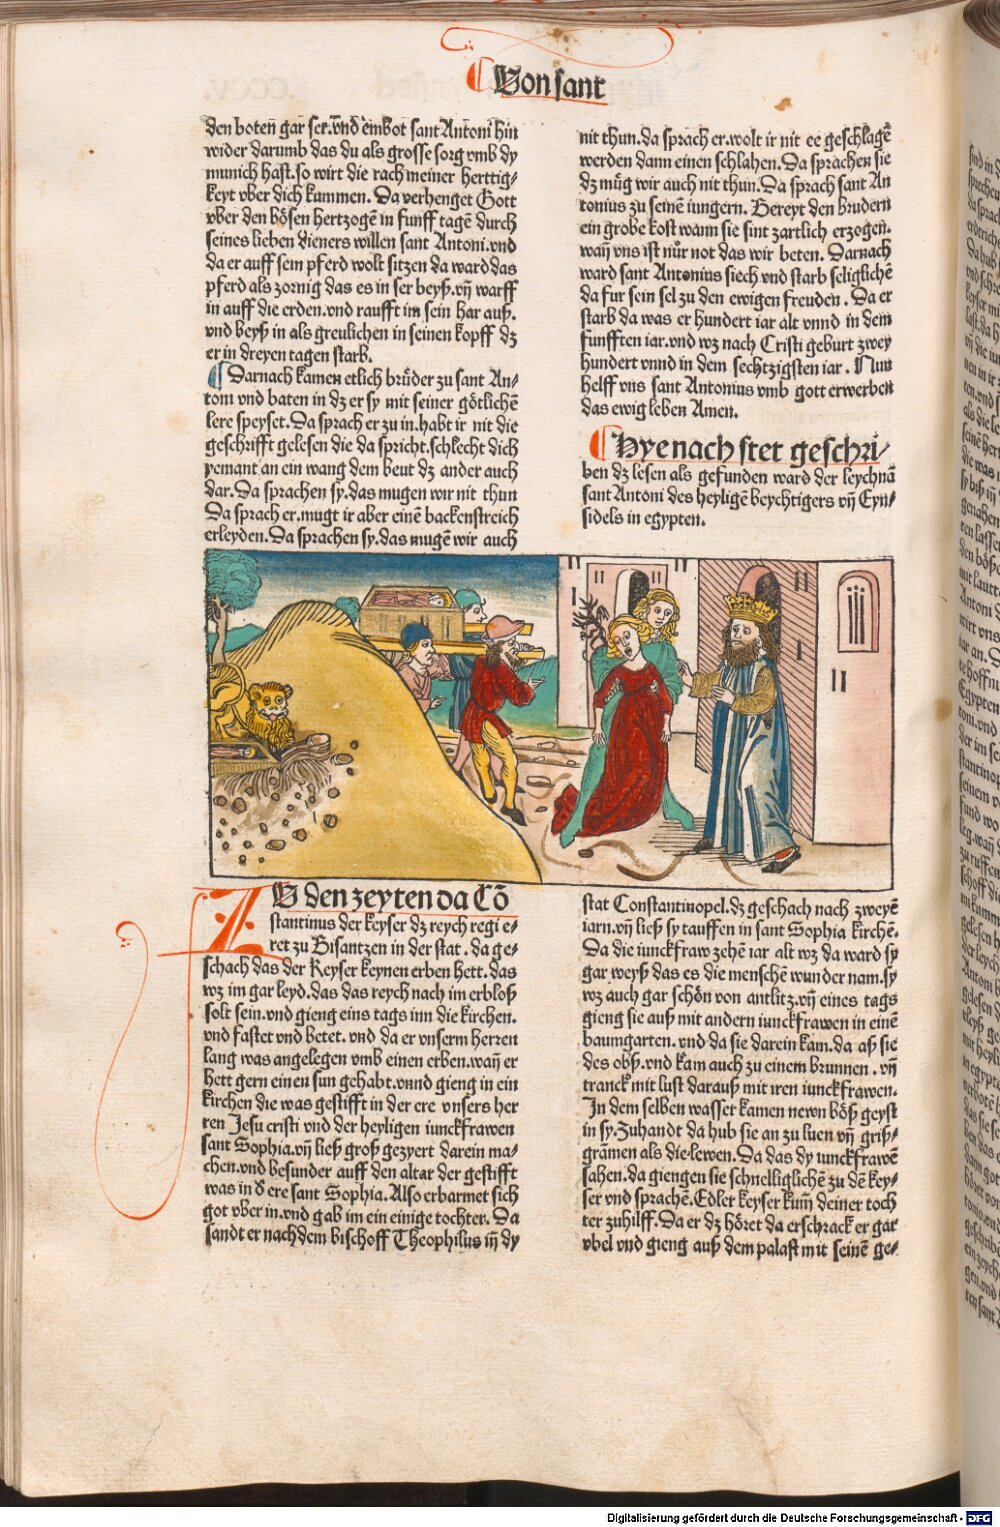 Von sant
den boten gar ser. vnd embot sant Antoni hin
wider darumb das du als grosse sorg vmb dy
munich hast. so wirt die rach meiner herttig-
keyt vber dich kummen. Da verhenget Gott
vber den bösen hertzogē in funff tagē durch
seines lieben dieners willen sant Antoni. vnd
da er auff sein pferd wolt sitzen da ward das
pferd als zornig das es in ser beyß. vn̄ warff
in auff die erden. vnd raufft im sein har auß.
vnd beyß in als greulichen in seinen kopff dz
er in dreyen tagen starb.
Darnach kamen etlich brůder zu sant An-
toni vnd baten in dz er sy mit seiner götlichē
lere speyset. Da sprach er zu in. habt ir nit die
geschrifft gelesen die da spricht. schlecht dich
yemant an ein wang dem beut dz ander auch
dar. Da sprachen sy. das mugen wir nit thun
Da sprach er. mugt ir aber einē backenstreich
erleyden. Da sprachen sy. das mugē wir auch
nit thun. da sprach er. wolt ir nit ee geschlagē
werden dann einen schlahen. Da sprachen sie
dz můg wir auch nit thun. Da sprach sant An
tonius zu seinē iungern. Bereyt den brudern
ein grobe kost wann sie sint zartlich erzogen.
wan̄ vns ist nůr not das wir beten. Darnach
ward sant Antonius siech vnd starb seliglichē
da fur sein sel zu den ewigen freuden. Da er
starb da was er hundert iar alt vnnd in dem
funfften iar. vnd wz nach Cristi geburt zwey
hundert vnnd in dem sechtzigsten iar. Nun
helff vns sant Antonius vmb gott erwerben
das ewig leben Amen.
Hye nach stet geschri-
ben dz lesen als gefunden ward der leychnā
sant Antoni des heyligē beychtigers vn̄ Eyn-
sidels in egypten.
ZV den zeyten da Cō
stantinus der keyser dz reych regi e-
ret zu Bisantzen in der stat. da ge-
schach das der Keyser keynen erben hett. das
wz im gar leyd. das das reych nach im erbloß
solt sein. vnd gieng eins tags inn die kirchen.
vnd fastet vnd betet. vnd da er vnserm herren
lang was angelegen vmb einen erben. wan̄ er
hett gern einen sun gehabt. vnnd gieng in ein
kirchen die was gestifft in der ere vnsers her
ren Jesu cristi vnd der heyligen iunckfrawen
sant Sophia. vn̄ ließ groß gezyert darein ma-
chen. vnd besunder auff den altar der gestifft
was in d̄ ere sant Sophia. Also erbarmet sich
got vber in. vnd gab im ein einige tochter. Da
sandt er nach dem bischoff Theophilus in̄ dy
stat Constantinopel. dz geschach nach zweyē
iarn. vn̄ ließ sy tauffen in sant Sophia kirchē.
Da die iunckfraw zehē iar alt wz da ward sy
gar weyß das es die menschē wunder nam. sy
wz auch gar schön von antlitz. vn̄ eines tags
gieng sie auß mit andern iunckfrawen in einē
baumgarten. vnd da sie darein kam. da aß sie
des obß. vnd kam auch zu einem brunnen. vn̄
tranck mit lust darauß mit iren iunckfrawen.
In dem selben wasser kamen newn böß geyst
in sy. Zuhandt da hub sie an zu luen vn̄ griß-
grāmen als die lewen. Da das dy iunckfrawē
sahen. da giengen sie schnelliglichē zu dē key-
ser vnd sprachē. Edler keyser kum̄ deiner toch
ter zuhilff. Da er dz höret da erschrack er gar
vbel vnd gieng auß dem palast mit seinē ge-
Digitalisierung gefördert durch die Deutsche Forschungsgemeinschaft - DFG